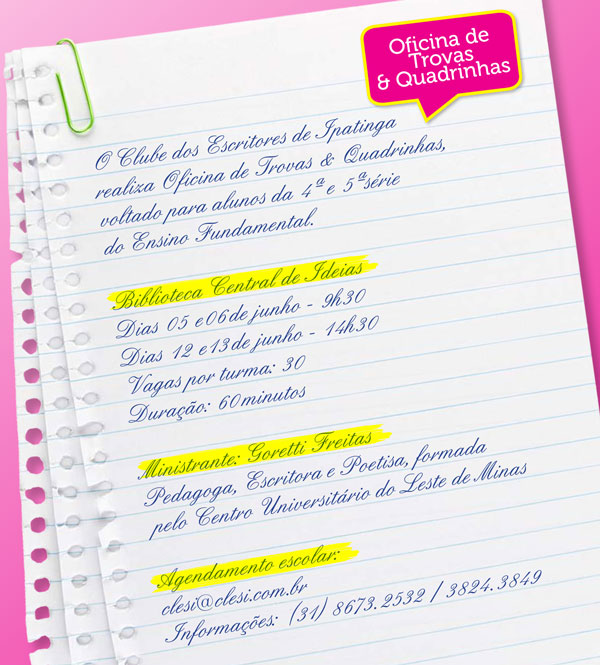 Oficina de
Trovas
& Quadrinhas
O Clube dos Escritores de Ipatinga
realiza Oficina de Trovas & Quadrinhas,
voltado para alunos da 4ª e 5ª série
do Ensino Fundamental.
Biblioteca Central de Ideias
Dias 05 e 06 de junho - 9h30
Dias 12 e 13 de junho - 14h30
Vagas por turma: 30
Duração: 60 minutos
Ministrante: Goretti Freitas
Pedagoga, Escritora e Poetisa, formada
pelo Centro Universitário do Leste de Minas
Agendamento escolar:
clesi@clesi.com.br
Informações: (31) 8673.2532 / 3824.3849